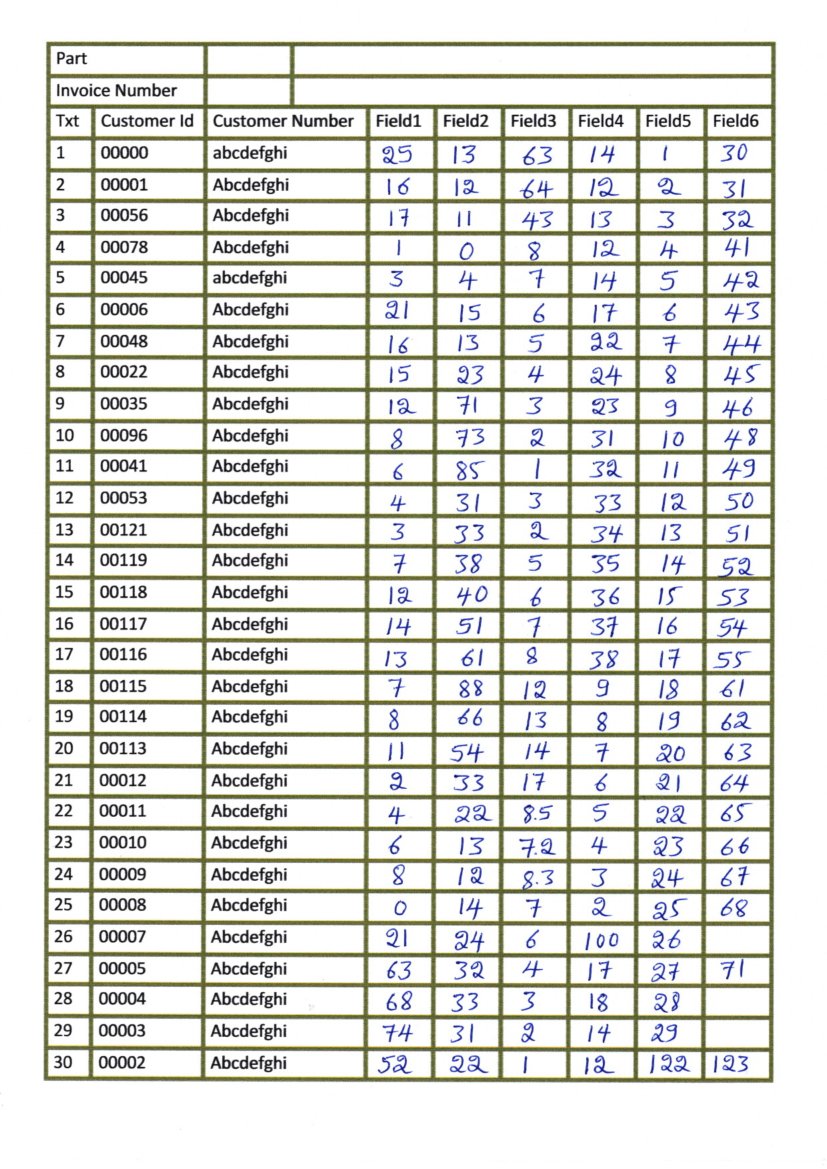 Part
Invoice Number
Txt Customer Id Customer Number Field1 Field2 Field3 Field4 Field5 Field6
1 00000 abcdefghi 25 13 63 14 1 30
2 00001 Abcdefghi 16 12 64 12 2 31
3 00056 Abcdefghi 17 11 43 13 3 32
4 00078 Abcdefghi 1 0 8 12 4 41
5 00045 abcdefghi 3 4 7 14 5 42
6 00006 Abcdefghi 21 15 6 17 6 43
7 00048 Abcdefghi 16 13 5 22 7 44
8 00022 Abcdefghi 15 23 4 24 8 45
9 00035 Abcdefghi 12 71 3 23 9 46
10 00096 Abcdefghi 8 73 2 31 10 48
11 00041 Abcdefghi 6 85 1 32 11 49
12 00053 Abcdefghi 4 31 3 33 12 50
13 00121 Abcdefghi 3 33 2 34 13 51
14 00119 Abcdefghi 7 38 5 35 14 52
15 00118 Abcdefghi 12 40 6 36 15 53
16 00117 Abcdefghi 14 51 7 37 16 54
17 00116 Abcdefghi 13 61 8 38 17 55
18 00115 Abcdefghi 7 88 12 9 18 61
19 00114 Abcdefghi 8 66 13 8 19 62
20 00113 Abcdefghi 11 54 14 7 20 63
21 00012 Abcdefghi 2 33 17 6 21 64
22 00011 Abcdefghi 4 22 8.5 5 22 65
23 00010 Abcdefghi 6 13 7.2 4 23 66
24 00009 Abcdefghi 8 12 8.3 3 24 67
25 00008 Abcdefghi 0 14 7 2 25 68
26 00007 Abcdefghi 21 24 6 100 26
27 00005 Abcdefghi 63 32 4 17 27 71
28 00004 Abcdefghi 68 33 3 18 28
29 00003 Abcdefghi 74 31 2 14 29
30 00002 Abcdefghi 52 22 1 12 122 123